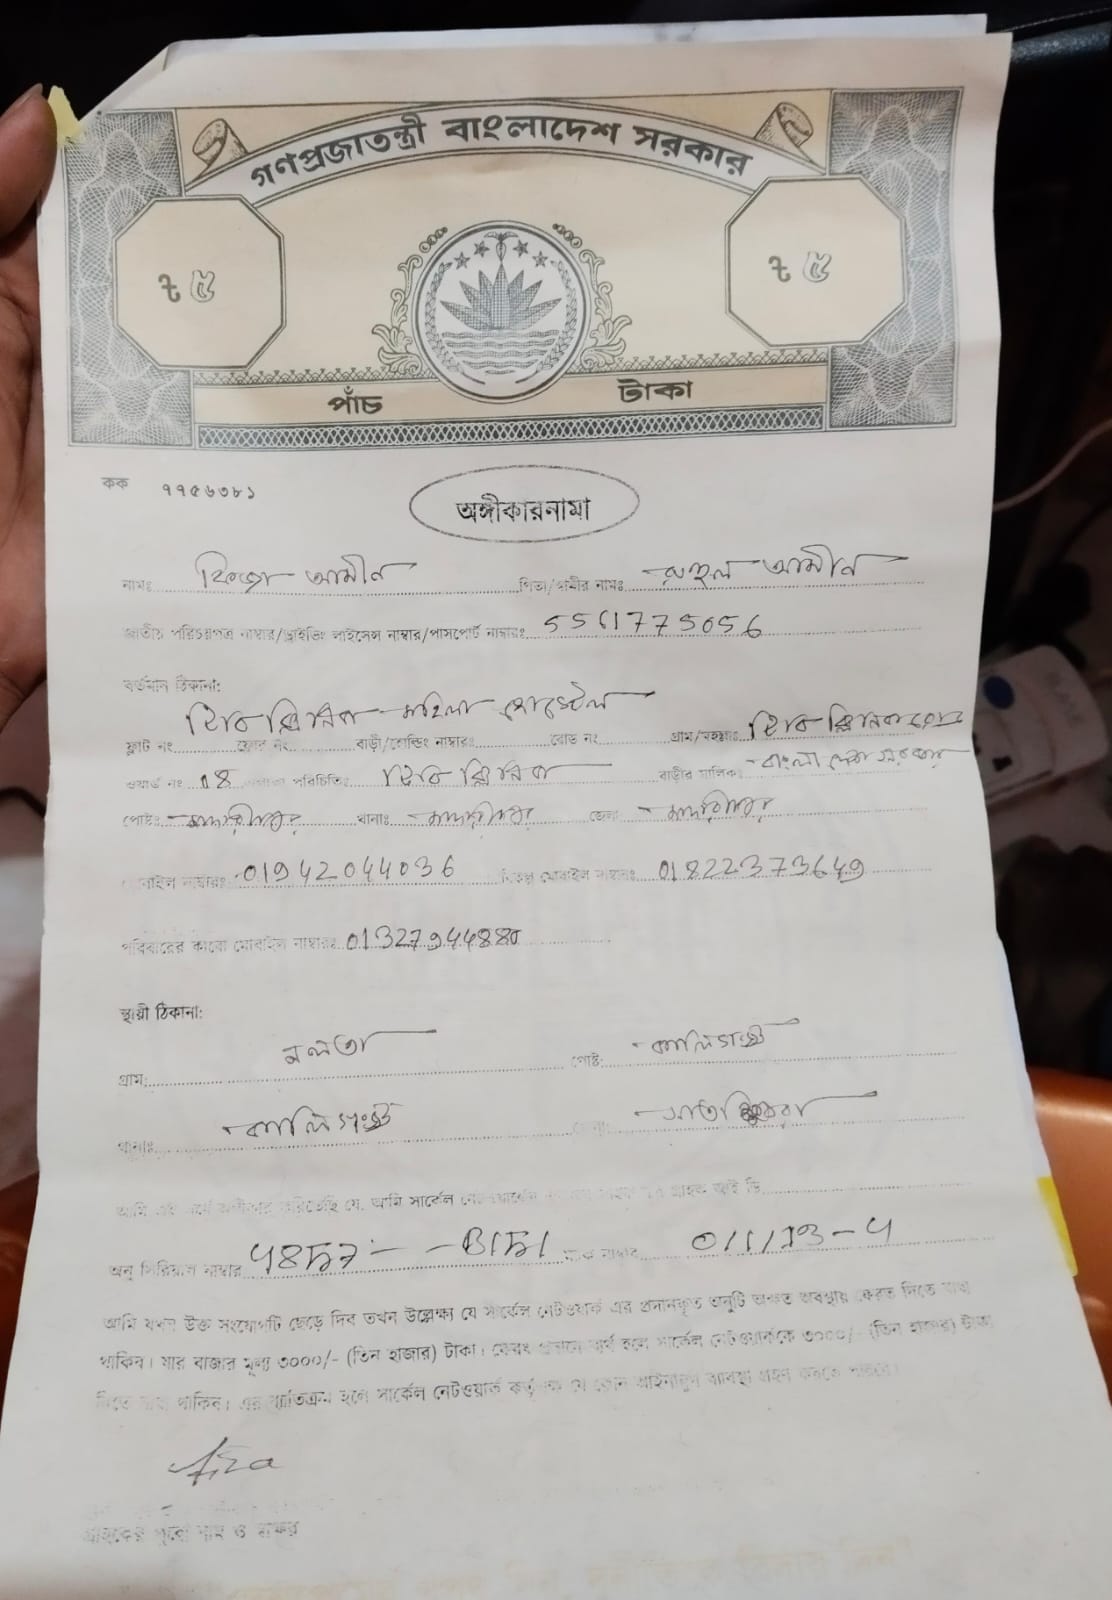 গণপ্রজাতন্ত্রী বাংলাদেশ সরকার
৳ ৫ ৳ ৫
পাঁচ টাকা
কক ৭৭৫৬৩৮১
অঙ্গীকারনামা
নামঃ ফিজা আমীন পিতা/স্বামীর নামঃ রুহুল আমীন
জাতীয় পরিচয়পত্র নাম্বার/ড্রাইভিং লাইসেন্স নাম্বার/পাসপোর্ট নাম্বারঃ
বর্তমান ঠিকানা:
মহিলা হোস্টেল
ফ্লাট নং ফ্লোর নং বাড়ী/হোল্ডিং নাম্বারঃ রোড নং গ্রাম/মহল্লাঃ
ওয়ার্ড নং 08 এলাকা পরিচিতিঃ বাড়ীর মালিকঃ বাংলাদেশ সরকার
পোষ্টঃ মাদারীপুর থানাঃ মাদারীপুর জেলা মাদারীপুর
মোবাইল নাম্বারঃ 01942044036 বিকল্প মোবাইল নাম্বারঃ 01822373649
পরিবারের কারো মোবাইল নাম্বারঃ 01327944880
স্থায়ী ঠিকানা:
গ্রাম: নলতা পোষ্ট: কালিগঞ্জ
থানাঃ কালিগঞ্জ জেলাঃ সাতক্ষীরা
আমি এই মর্মে অঙ্গীকার করিতেছি যে, আমি সার্কেল নেটওয়ার্কের গ্রাহক আই ডি
অনু সিরিয়াল নাম্বার ম্যাক নাম্বার
আমি যখন উক্ত সংযোগটি ছেড়ে দিব তখন উল্লেক্ষ্য যে সার্কেল নেটওয়ার্ক এর প্রদানকৃত অনুটি অক্ষত অবস্থায় ফেরত দিতে বাধ্য
থাকিব। যার বাজার মূল্য ৩০০০/- (তিন হাজার) টাকা। ফেরৎ প্রদানে ব্যর্থ হলে সার্কেল নেটওয়ার্ককে ৩০০০/- (তিন হাজার) টাকা
দিতে বাধ্য থাকিব। এর ব্যতিক্রম হলে সার্কেল নেটওয়ার্ক কর্তৃপক্ষ যে কোন আইনানুগ ব্যবস্থা গ্রহন করতে পারবে।
fiza
গ্রাহকের পুরো নাম ও স্বাক্ষর